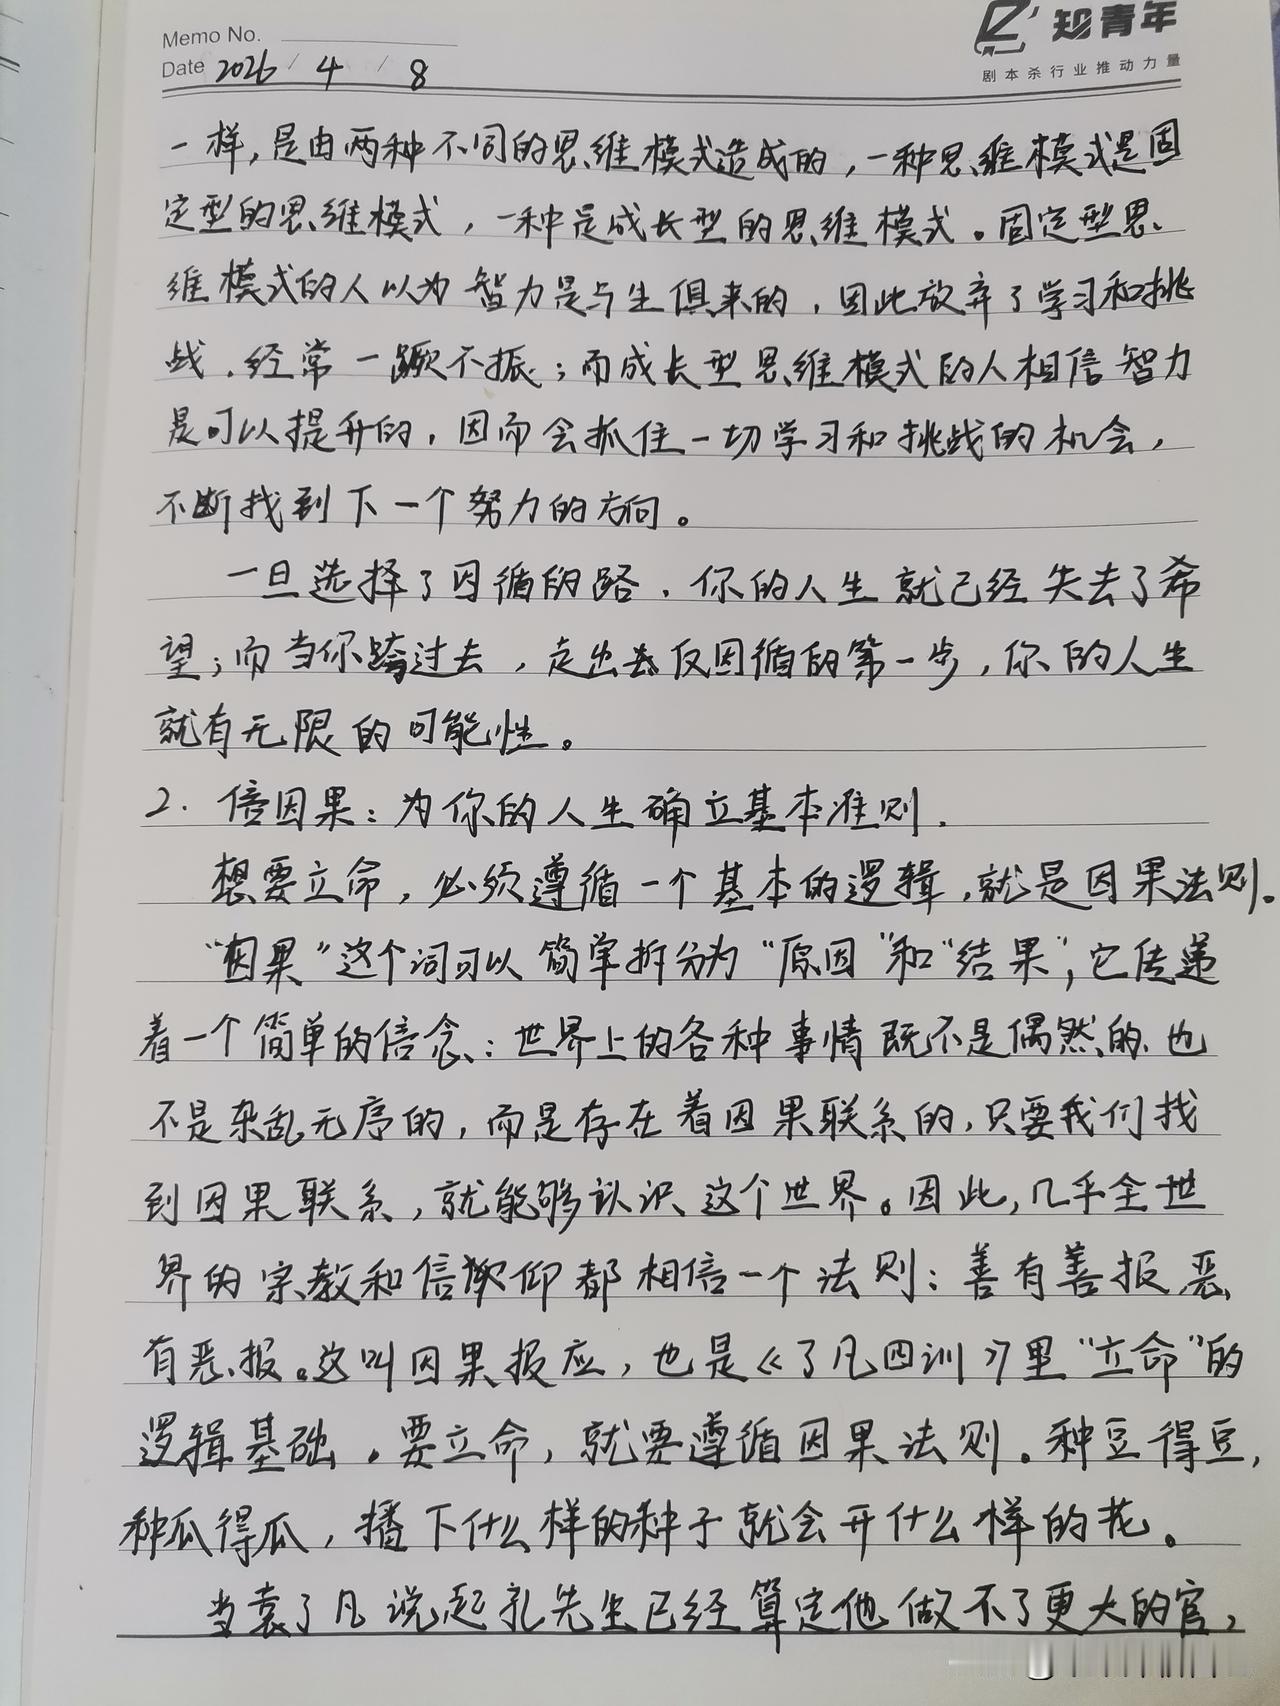 Memo No.
知青年
Date 2026 / 4 / 8
剧本杀行业推动力量
一样，是由两种不同的思维模式造成的，一种思维模式是固
定型的思维模式，一种是成长型的思维模式。固定型思
维模式的人以为智力是与生俱来的，因此放弃了学习和挑
战，经常一蹶不振；而成长型思维模式的人相信智力
是可以提升的，因而会抓住一切学习和挑战的机会，
不断找到下一个努力的方向。
一旦选择了因循的路，你的人生就已经失去了希
望；而当你跨过去，走出去反因循的第一步，你的人生
就有无限的可能性。
2. 信因果：为你的人生确立基本准则.
想要立命，必须遵循一个基本的逻辑，就是因果法则。
“因果”这个词可以简单拆分为“原因”和“结果”，它传递
着一个简单的信念：世界上的各种事情既不是偶然的、也
不是杂乱无序的，而是存在着因果联系的，只要我们找
到因果联系，就能够认识这个世界。因此，几乎全世
界的宗教和信仰都相信一个法则：善有善报，恶
有恶报。这叫因果报应，也是《了凡四训》里“立命”的
逻辑基础。要立命，就要遵循因果法则。种豆得豆，
种瓜得瓜，播下什么样的种子就会开什么样的花。
当袁了凡说起孔先生已经算定他做不了更大的官，